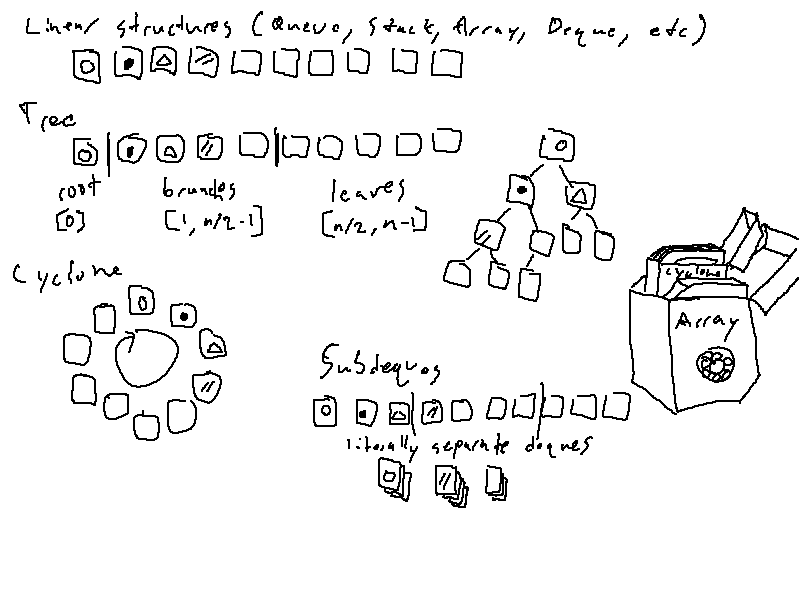 Linear structures (Queue, Stack, Array, Deque, etc)
Tree
root branches leaves
[0] [1, n/2-1] [n/2, n-1]
Cyclone
cyclone
Array
Subdeques
literally separate deques